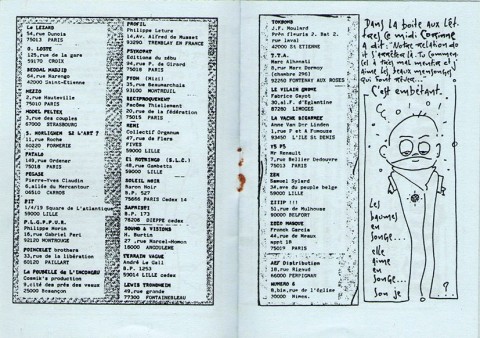 Le LEZARD
54,rue Dunois
75013 PARIS
O. LOSTE
125,rue de la gare
59170 CROIX
BEDDAD MADJID
64,rue Marengo
42000 Saint-Etienne
MEZZO
2,rue Hauteville
75010 PARIS
MODEL PELTEX
3,rue des couples
67000 STRASBOURG
11,rue Roche
60220 FORMERIE
PATALO
149,rue Ordener
75018 PARIS
PEGASE
Pierre-Yves Claudin
6,allée du Mercantour
06510 CARROS
PIT
1/4/19 Square de l'atlantique
59000 LILLE
P.L.G.P.P.U.R.
Philippe Morin
18,rue Gabriel Peri
92120 MONTROUGE
POINCELET brothers
33,rue de la libération
60120 PAILLART
La POUBELLE de L'INCONGRU
Cosmik's production
9,cité des prés des veaux
25000 Besançon
PROFIL
Philippe Lature
14,AV. Alfred de Musset
93290 TREMBLAY EN FRANCE
PSYKOPAT
Editions du zébu
94,rue P. de Girard
75018 PARIS
PYON (Mizi)
35,rue Beaumarchais
93100 MONTREUIL
RECIPROQUEMENT
Pacôme Thiellement
20,rue de la fédération
75015 PARIS
REMI
Collectif Organum
47,rue de Fiers
FIVES
59000 LILLE
El ROTRINGO (S.L.C.)
1,rue Gambetta
59000 LILLE
SOLEIL NOIR
Baron Noir
B.P. 527
75666 PARIS Cedex 14
SAPRISTI
B.P. 173
76208 DIEPPE cedex
SOUND & VISIONS
H. Burtin
27 ,rue Marcel-Homon
16000 ANGOULEME
TERRAIN VAGUE
André Le Gall
B.P. 1253
59014 LILLE cedex
LEWIS TRONDHEIM
49,rue grande
77300 FONTAINEBLEAU
TONBOMB
J.F. Moulard
Prés fleuris 2. Bat 2.
rue laval
42000 St ETIENNE
T.T.A.
Marc Alhanati
8,rue Marx Dormoy
(chambre 2961
92260 FONTENAY AUX ROSES
LE VILAIN GNOME
Fabrice Gayot
30,al.F. d'Eglantine
87280 LIMOGES
LA VACHE BIGARREE
Anne Van Der Linden
1,rue P et A Fumouze
93450 L'ILE St DENIS
Y5 P5
Mr Renault
7,rue Bellier Dedouvre
75013 PARIS
ZEN
Samuel Sylard
34,ave du peuple belge
59000 LILLE
ZIIIP !!!
51,rue de Mulhouse
90000 BELFORT
ZOID MASQUE
Franck Garcia
44,rue de Meaux
appt 18
75019 PARIS
AEF Distribution
18,rue Rigaud
66000 PERPIGNAN
NUMERO 6
8,bis,rue de l'église
30000 Nimes.
Dans la boite aux let-
tres, ce midi Corinne
A dit: "Notre relation do
it s'arrêter là. Tu commen
ces à très mal mentir et j'
aime les beaux mensonges
C'est embêtant.
Les
baumes
en
songe...
elle
aime
en
songe...
son je
?